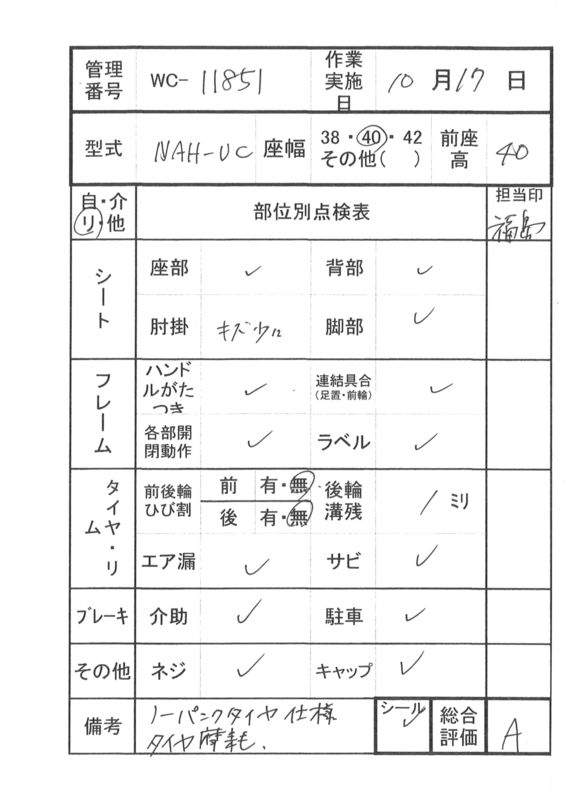 管理番号 WC-11851 作業実施日 10月17日
型式 NAH-UC 座幅 38・40・42 その他( ) 前座高 40
自・介リ・他 部位別点検表 担当印 福島
シート 座部 ✓ 背部 ✓
肘掛 キズ少々 脚部 ✓
フレーム ハンドルがたつき ✓ 連結具合(足置・前輪) ✓
各部開閉動作 ✓ ラベル ✓
タイヤ・リム 前後輪ひび割 前 有・無 後輪溝残 1 ミリ
後 有・無
エア漏 ✓ サビ ✓
ブレーキ 介助 ✓ 駐車 ✓
その他 ネジ ✓ キャップ ✓
備考 ノーパンクタイヤ仕様 シール ✓ 総合評価 A
タイヤ摩耗.